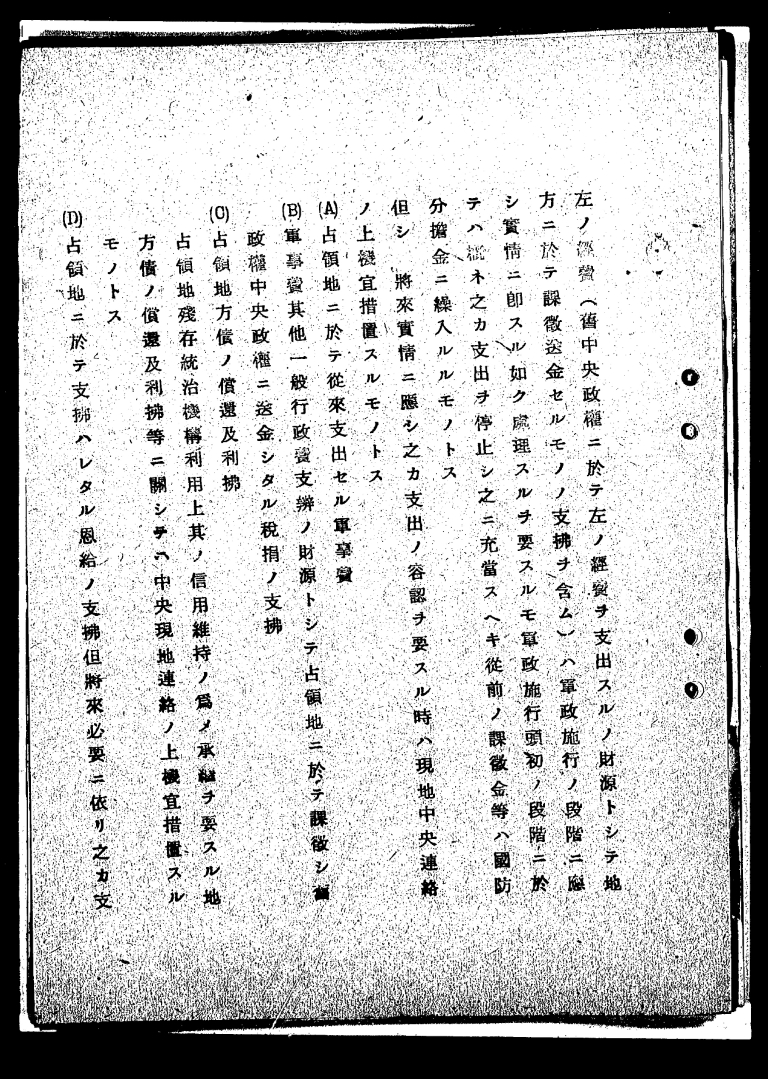 左ノ經費(舊中央政權ニ於テ左ノ經費ヲ支出スルノ財源トシテ地
方ニ於テ課徵送金セルモノノ支拂ヲ含ム)ハ軍政施行ノ段階ニ應
シ實情ニ卽スル如ク處理スルヲ要スルモ軍政施行頭初ノ段階ニ於
テハ概ネ之カ支出ヲ停止シ之ニ充當スヘキ從前ノ課徵金等ハ國防
分擔金ニ繰入ルルモノトス
但シ將來實情ニ應シ之カ支出ノ容認ヲ要スル時ハ現地中央連絡
ノ上機宜措置スルモノトス
(A)占領地ニ於テ從來支出セル軍事費
(B)軍事費其他一般行政費支辨ノ財源トシテ占領地ニ於テ課徵シ舊
政權中央政權ニ送金シタル稅捐ノ支拂
(C)占領地方債ノ償還及利拂
占領地殘存統治機構利用上其ノ信用維持ノ爲メ承繼ヲ要スル地
方債ノ償還及利拂等ニ關シテハ中央現地連絡ノ上機宜措置スル
モノトス
(D)占領地ニ於テ支拂ハレタル恩給ノ支拂但將來必要ニ依リ之カ支